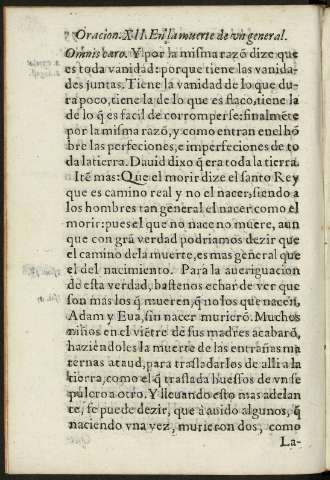 Oracion. XII. En la muerte de vn general.
Omnis caro. Y por la misma razõ dize que
es toda vanidad: porque tiene las vanida-
des juntas. Tiene la vanidad de lo que du-
ra poco, tiene la de lo que es flaco, tiene la
de lo q̃ es facil de corromperse: finalmẽte
por la misma razõ, y como entran en el hõ
bre las perfeciones, e imperfeciones de to
da la tierra. Dauid dixo q̃ era toda la tierra.
Itẽ mas: Que el morir dize el santo Rey
que es camino real y no el nacer, siendo a
los hombres tan general el nacer como el
morir: pues el que no nace no muere, aun
que con grã verdad podriamos dezir que
el camino de la muerte, es mas general que
el del nacimiento. Para la aueriguacion
de esta verdad, bastenos echar de ver que
son mas los q̃ mueren, q̃ no los que nacen,
Adam y Eua, sin nacer murierõ. Muchos
niños en el viẽtre de sus madres acabarõ,
haziendoles la muerte de las entrañas ma
ternas ataud, para trasladarlos de alli a la
tierra, como el q̃ traslada huessos de vn se
pulcro a otro. Y lleuando esto mas adelan
te, se puede dezir, que à auido algunos, q̃
naciendo vna vez, murieron dos, como
La-